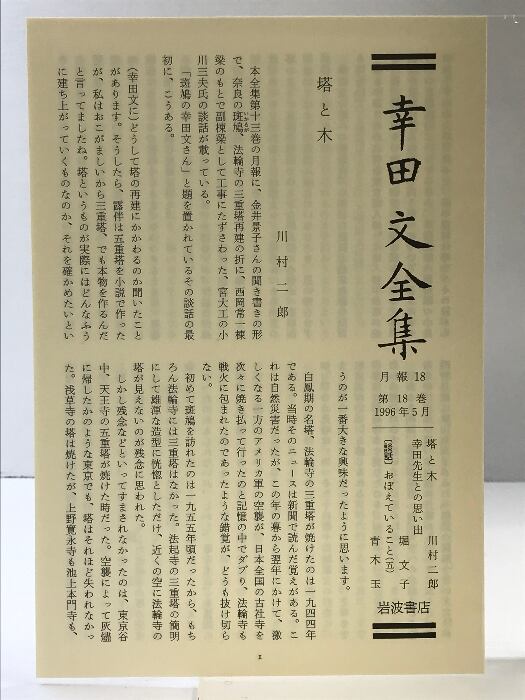 幸田文全集
月報18
第18巻
1996年5月
塔と木　川村二郎
幸田先生との思い出
堀文子
〔談話〕おぼえていること(五)
青木玉
岩波書店
塔と木
川村二郎
本全集第十三巻の月報に、金井景子さんの聞き書きの形
で、奈良の斑鳩、法輪寺の三重塔再建の折に、西岡常一棟
梁のもとで副棟梁として工事にたずさわった、宮大工の小
川三夫氏の談話が載っている。
「斑鳩の幸田文さん」と題を置かれているその談話の最
初に、こうある。
（幸田文に）どうして塔の再建にかかわるのか聞いたこと
があります。そうしたら、露伴は五重塔を小説で作った
が、私はおこがましいから三重塔、でも本物を作るんだ
と言ってましたね。塔というものが実際にはどんなふう
に建ち上がっていくものなのか、それを確かめたいとい
うのが一番大きな興味だったように思います。
白鳳期の名塔、法輪寺の三重塔が焼けたのは一九四四年
である。当時そのニュースは新聞で読んだ覚えがある。こ
れは自然災害だったが、この年の暮から翌年にかけて、激
しくなる一方のアメリカ軍の空襲が、日本全国の古社寺を
次々に焼き払って行ったのと記憶の中でダブり、法輪寺も
戦火に包まれたのであったような錯覚が、どうも抜け切ら
ない。
初めて斑鳩を訪れたのは一九五五年頃だったから、もち
ろん法輪寺には三重塔はなかった。法起寺の三重塔の簡明
にして雄渾な造型に恍惚としただけ、近くの空に法輪寺の
塔が見えないのが残念に思われた。
しかし残念などといってすまされなかったのは、東京谷
中、天王寺の五重塔が焼けた時だった。空襲によって灰燼
に帰したかのような東京でも、塔はそれほど失われなかっ
た。浅草寺の塔は焼けたが、上野寛永寺も池上本門寺も、
1